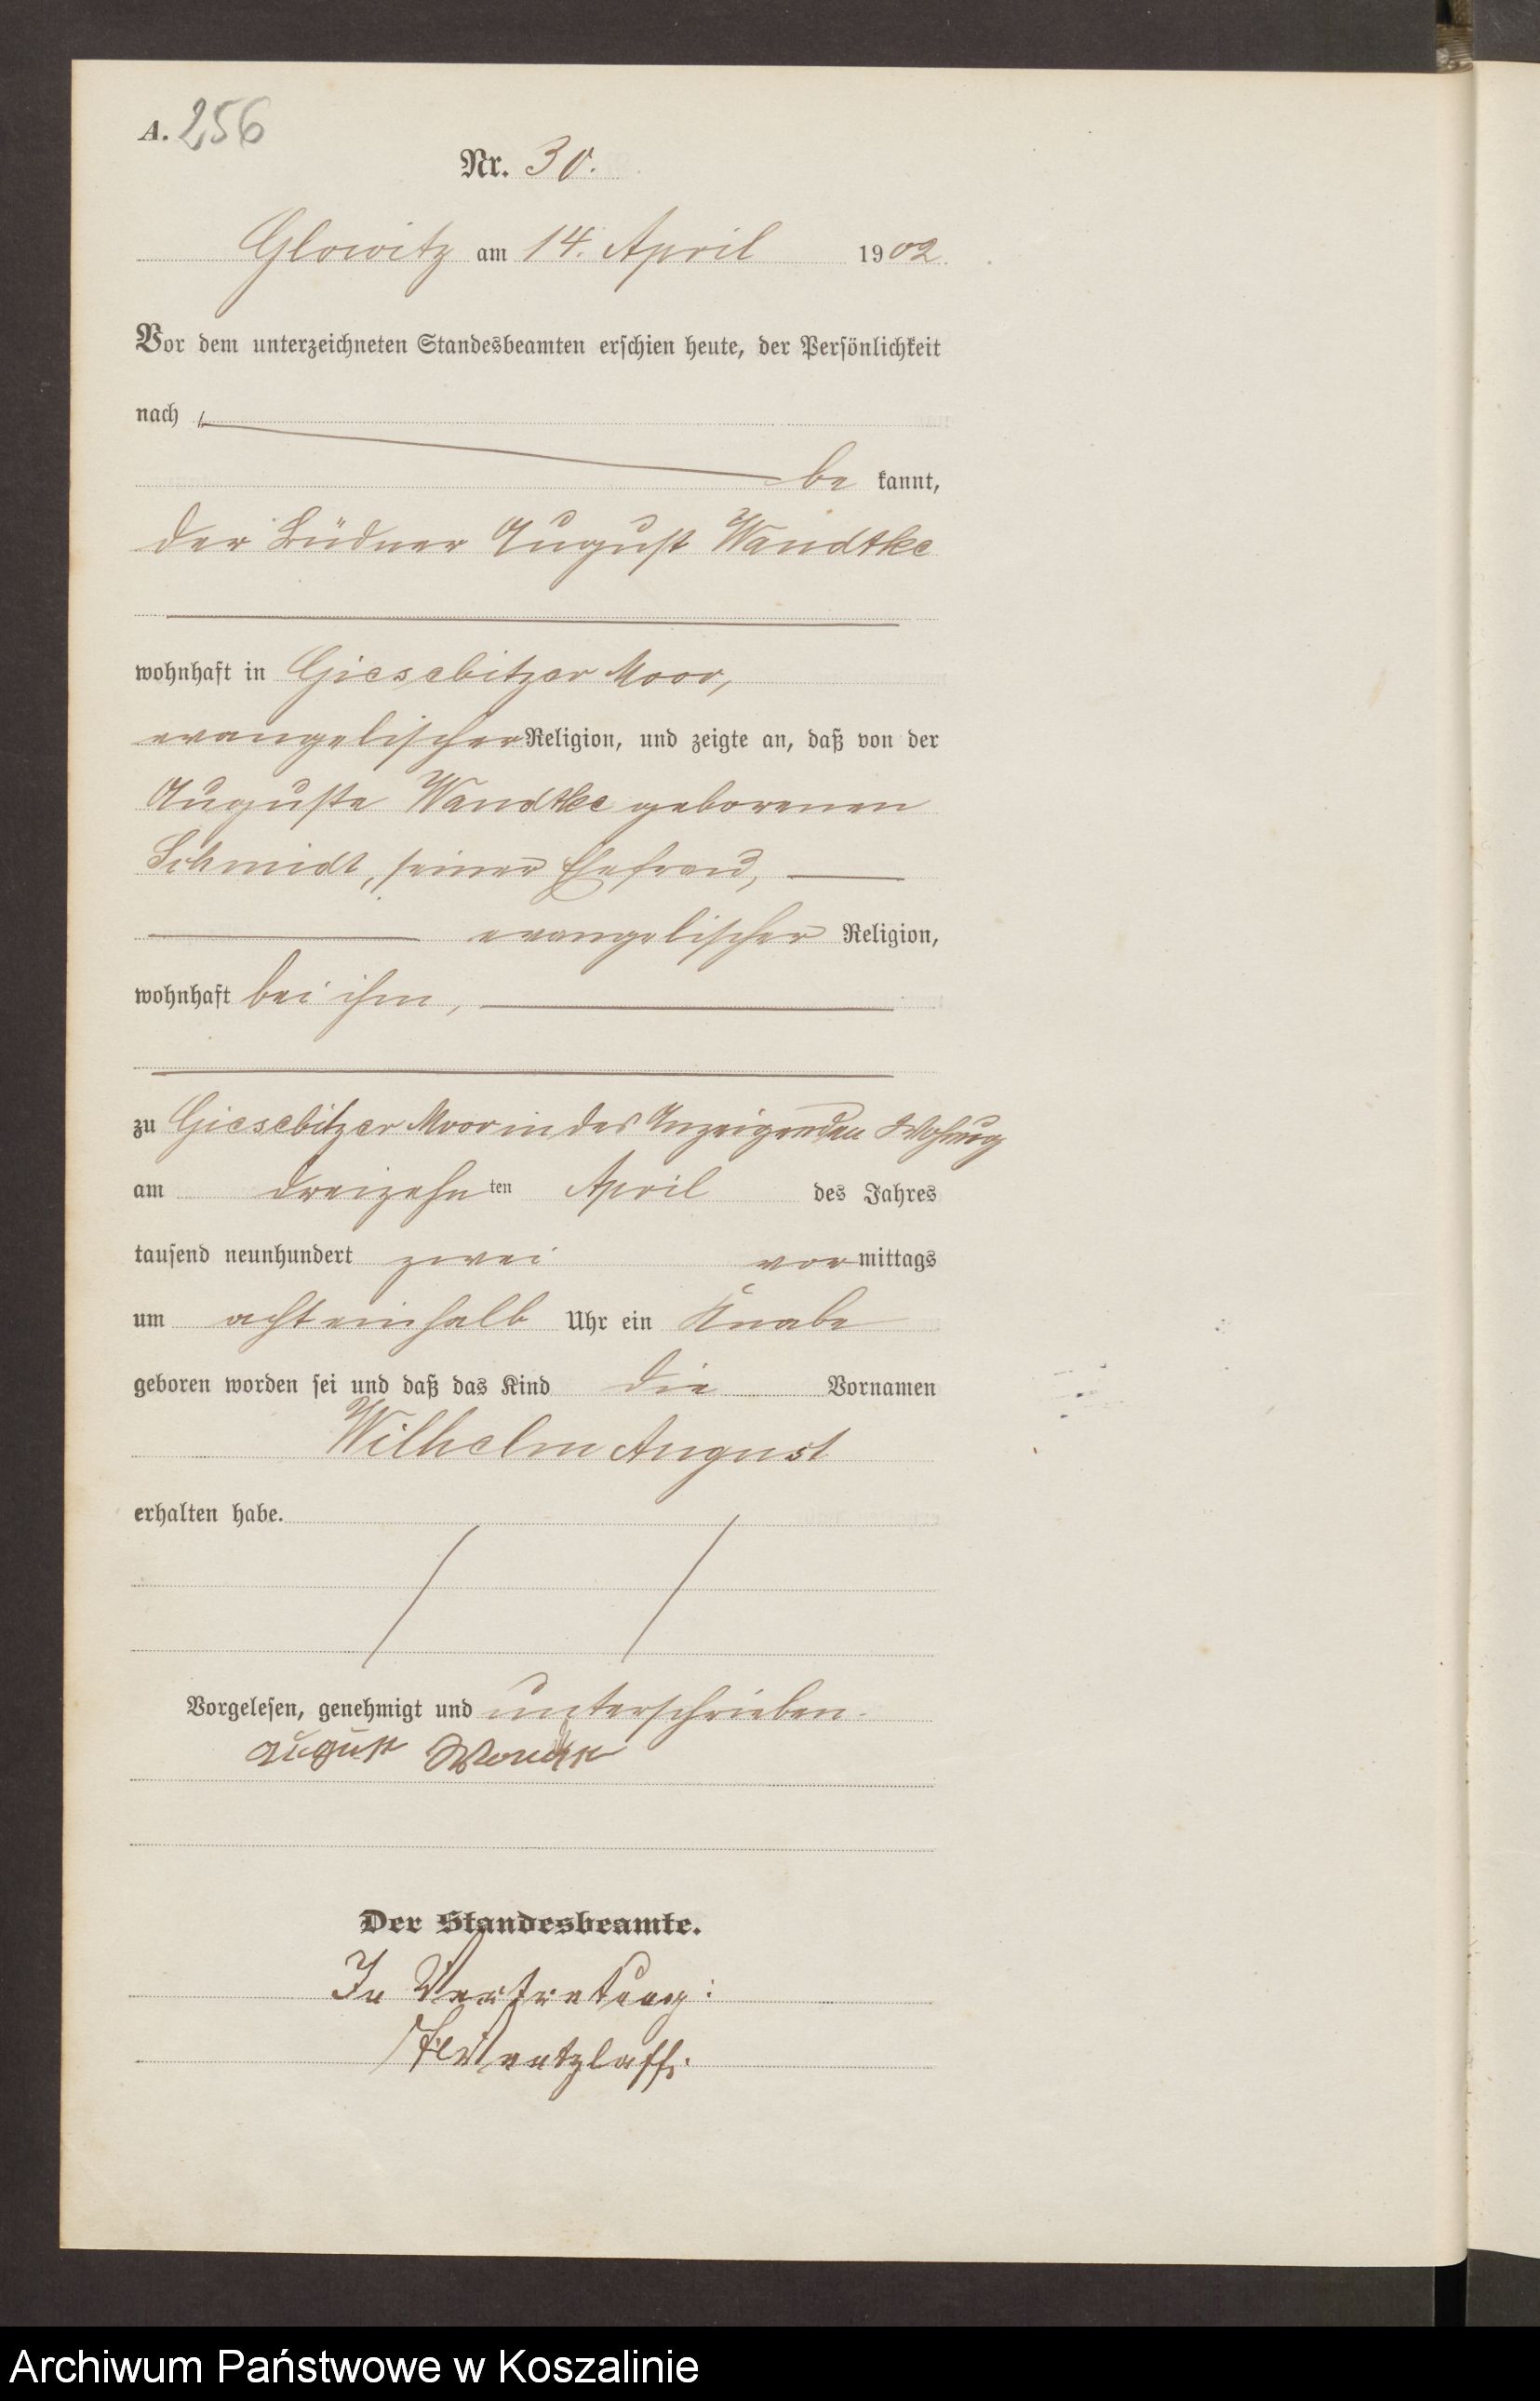 A. 256
Nr. 30.
Glowitz am 14. April 1902.
Vor dem unterzeichneten Standesbeamten erschien heute, der Persönlichkeit
nach
be kannt,
der Büdner August Wandtke
wohnhaft in Giesebitzer Moor,
evangelischer Religion, und zeigte an, daß von der
Auguste Wandtke geborenen
Schmidt, seiner Ehefrau,
evangelischer Religion,
wohnhaft bei ihm,
zu Giesebitzer Moor in des Anzeigenden Wohnung
am dreizehn ten April des Jahres
tausend neunhundert zwei vor mittags
um acht einhalb Uhr ein Knabe
geboren worden sei und daß das Kind die Vornamen
Wilhelm August
erhalten habe.
Vorgelesen, genehmigt und unterschrieben.
August
Der Standesbeamte.
In Vertretung:
Archiwum Państwowe w Koszalinie